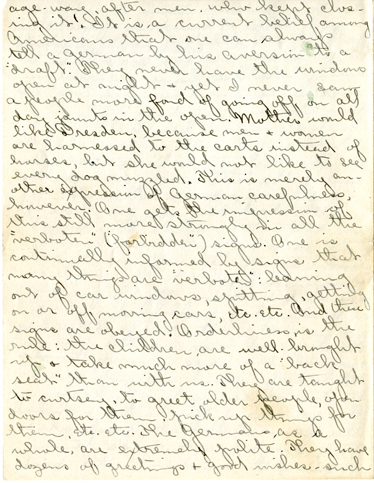 age-way, after men who kept clos-
ing it! It is a current belief among
Americans that one can always
tell a German by his aversion to a
"draft". They never have the windows
open at night + yet I never saw
a people more fond of going off on all
day jaunts in the open. Mother would
like Dresden, because men + women
are harnessed to the carts instead of
horses, but she would not like to see
every dog muzzled. This is merely an-
other expression of German carefulness,
however. One gets the impression of
this still more strongly in all the
"verboten" (forbidden) signs. One is
continually informed by signs that
many things are "verboten": leaning
out of car windows, spitting, getting
on or off moving cars, etc. etc. And these
signs are obeyed. Orderliness is the
rule: the children are well brought
up, + take much more of a "back
seat" than with us. They are taught
to curtsey, to greet older people, open
doors for them, pick up things for
them, etc. etc. The Germans, as a
whole, are extremely polite. They have
dozens of greetings + good wishes - such